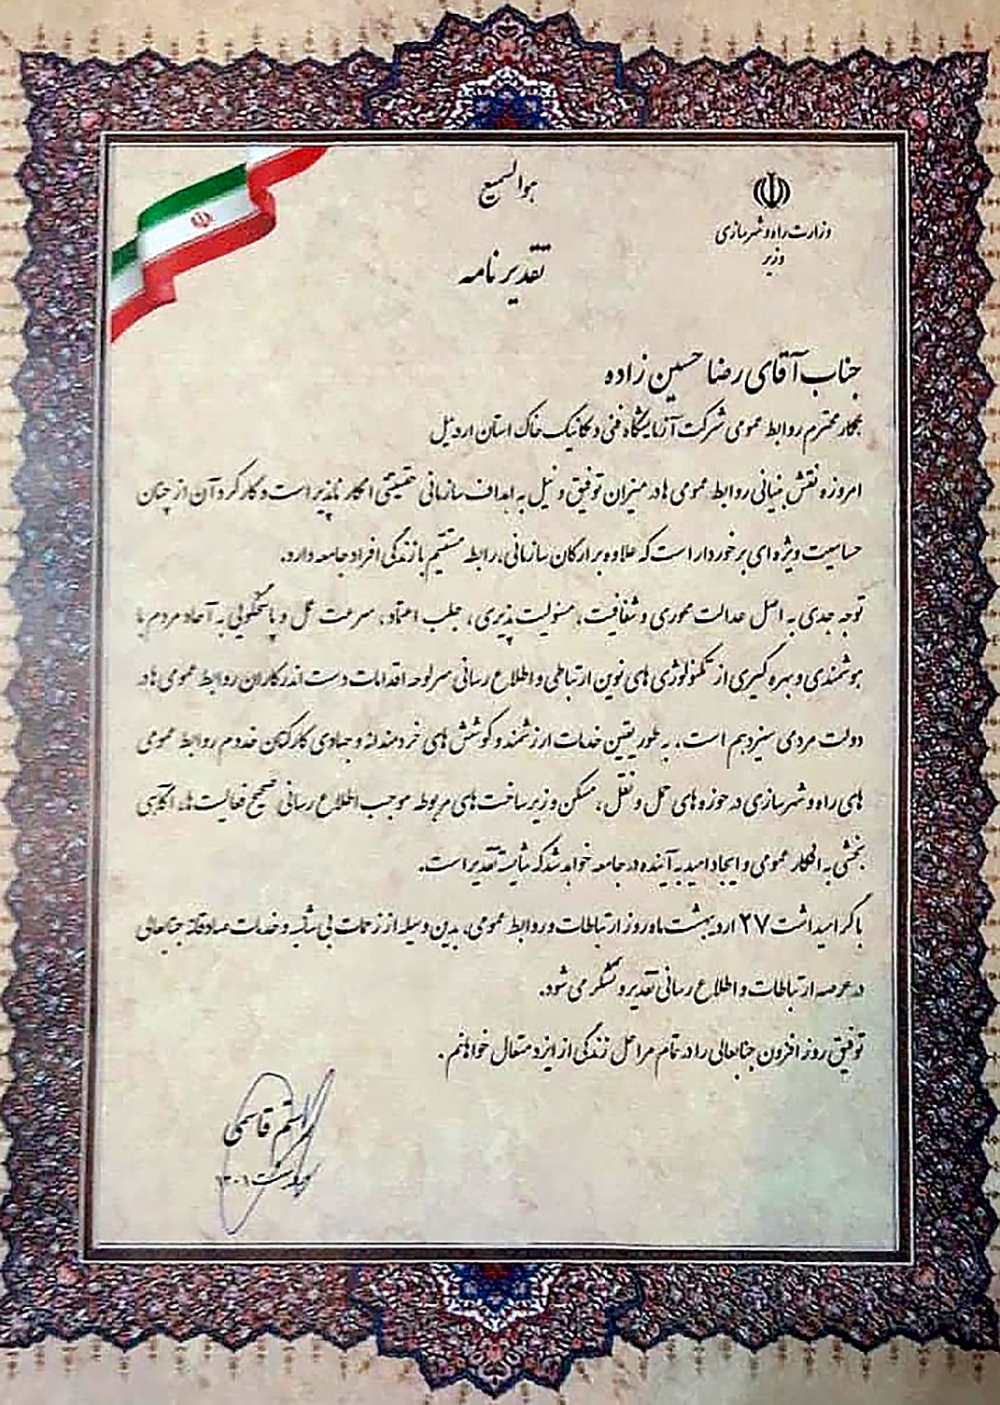 هوالسمیع
وزارت راه و شهرسازی
وزیر
تقدیرنامه
جناب آقای رضا حسین زاده
همکار محترم روابط عمومی شرکت آزمایشگاه فنی و مکانیک خاک استان اردبیل
امروزه نقش بنیانی روابط عمومی ها در میزان توفیق و نیل به اهداف سازمانی حقیقتی انکار ناپذیر است و کارکرد آن از چنان
حساسیت ویژه ای برخوردار است که علاوه بر ارکان سازمانی، رابطه مستقیم با زندگی افراد جامعه دارد.
توجه جدی به اصل عدالت محوری و شفافیت، مسئولیت پذیری، جلب اعتماد، سرعت عمل و پاسخگویی به آحاد مردم با
هوشمندی و بهره گیری از تکنولوژی های نوین ارتباطی و اطلاع رسانی سرلوحه اقدامات دست اندرکاران روابط عمومی ها در
دولت مردی سیزدهم است، به طور یقین خدمات ارزشمند و کوشش های خردمندانه و جهادی کارکنان خدوم روابط عمومی
های راه و شهرسازی در حوزه های حمل و نقل، مسکن و زیرساخت های مربوطه موجب اطلاع رسانی صحیح فعالیت ها، آگاهی
بخشی به افکار عمومی و ایجاد امید به آینده در جامعه خواهد شد که شایسته تقدیر است.
با گرامیداشت ۲۷ اردیبهشت ماه روز ارتباطات و روابط عمومی، بدین وسیله از زحمات بی شائبه و خدمات صادقانه جنابعالی
در عرصه ارتباطات و اطلاع رسانی تقدیر و تشکر می شود.
توفیق روز افزون جنابعالی را در تمام مراحل زندگی از ایزد متعال خواهانم.
رستم قاسمی
اردیبهشت ۱۴۰۱